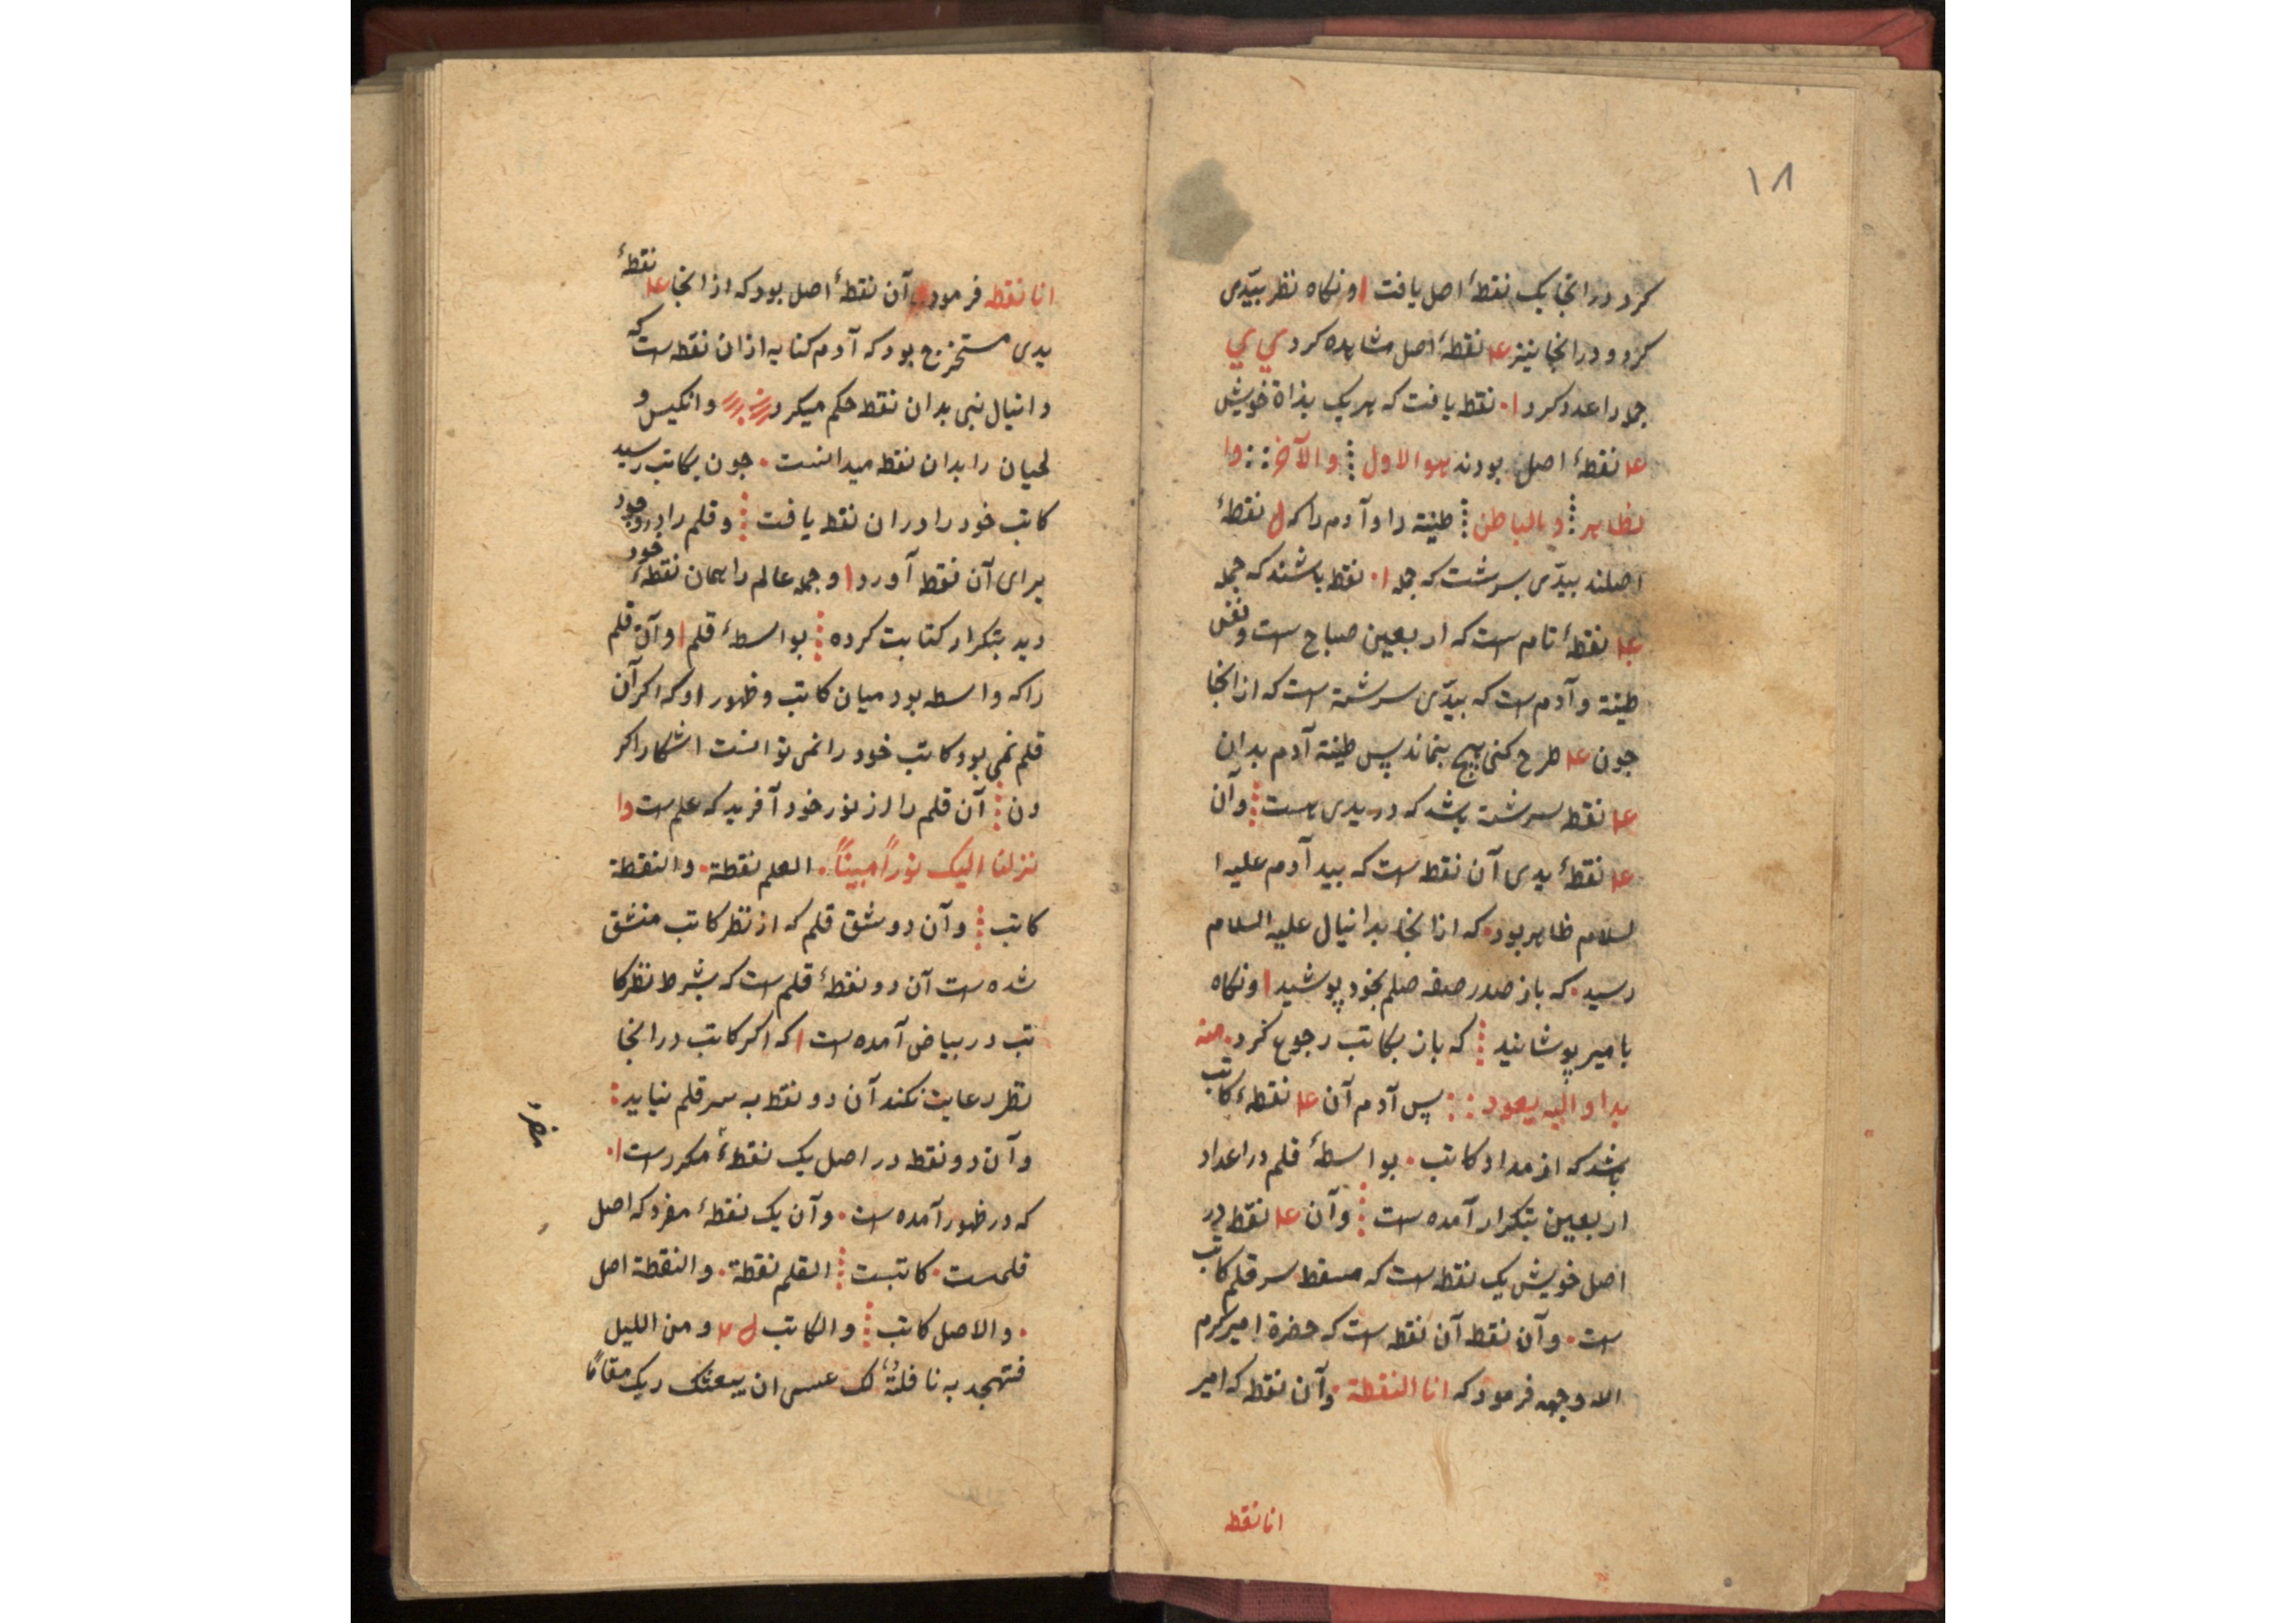 ١٨
کرد درانجا یک نقطهٔ اصل یافت ا ونکاه نظر بیدّی
کرد و درانجا نیز ع‍ا نقطهٔ اصل مشاهده کرد ی ی
جمله را عدد کرد ۱۰ نقطه یافت که هر یک بذاة خویش
ع‍ا نقطهٔ اصل بودند هوالاول والآخر وا
لظاهر و بالباطن طینة را و آدم را که ل نقطهٔ
اصلند بیدّی بسرشت که جمله ۱۰ نقطه باشند که جمله
نقطهٔ تام است که اربعین صباح است ونفس
طینة و آدم است که بیدّی سرشته است که ازانجا
جون ع‍ا طرح کنی هیچ بنماند پس طینة آدم بدان
ع‍ا نقطه سرشته باشد که در یدی است وآن
ع‍ا نقطهٔ یدی آن نقطه است که بید آدم علیه ا
لسلام ظاهر بود که ازانجا بدانیال علیه السلام
رسید که باز صدر صفه صلم بخود پوشید ا ونکاه
بامیر پوشانید که باز بکاتب رجوع کرد منه
بدا و الیه یعود پس آدم آن ع‍ا نقطهٔ کاتب
باشد که از مداد کاتب بواسطهٔ قلم در اعداد
اربعین بتکرار آمده است وآن ع‍ا نقطه در
اصل خویش یک نقطه است که مسقط سر قلم کاتب
است وآن نقطه آن نقطه است که حضرة امیر کرم
الله وجهه فرمود که انا النقطة وآن نقطه که امیر
انا نقطه
انا نقطه فرمود آن نقطهٔ اصل بود که ازانجا ع‍ا نقطهٔ
یدی مستخرج بود که آدم کنایه ازان نقطه است که
دانیال نبی بدان نقطه حکم میکرد وانکیس و
لحیان را بدان نقطه میدانست جون بکاتب رسید
کاتب خود را دران نقطه یافت وقلم را در وجود
برای آن نقطه آورد ا وجمله عالم را همان نقطهٔ خود
دید بتکرار کتابت کرده بواسطهٔ قلم ا وآن قلم
را که واسطه بود میان کاتب وظهور او که اکر آن
قلم نمی بود کاتب خود را نمی توانست اشکارا کر
دن آن قلم را از نور خود آفرید که علم است وا
نزلنا الیک نوراً مبیناً العلم نقطة والنقطة
کاتب وآن دو شق قلم که از نظر کاتب منشق
شده است آن دو نقطهٔ قلم است که بشرط نظر کا
تب در بیاض آمده است ا که اکر کاتب درانجا
نظر رعایت نکند آن دو نقطه به سر قلم نیاید
وآن دو نقطه در اصل یک نقطهٔ مکرر است ۱۰
که در ظهور آمده است وآن یک نقطهٔ مفرد که اصل
قلمست کاتبست القلم نقطة والنقطة اصل
والاصل کاتب والکاتب ومن اللیل
فتهجد به نافلةً لک عسی ان یبعثک ربک مقامًا